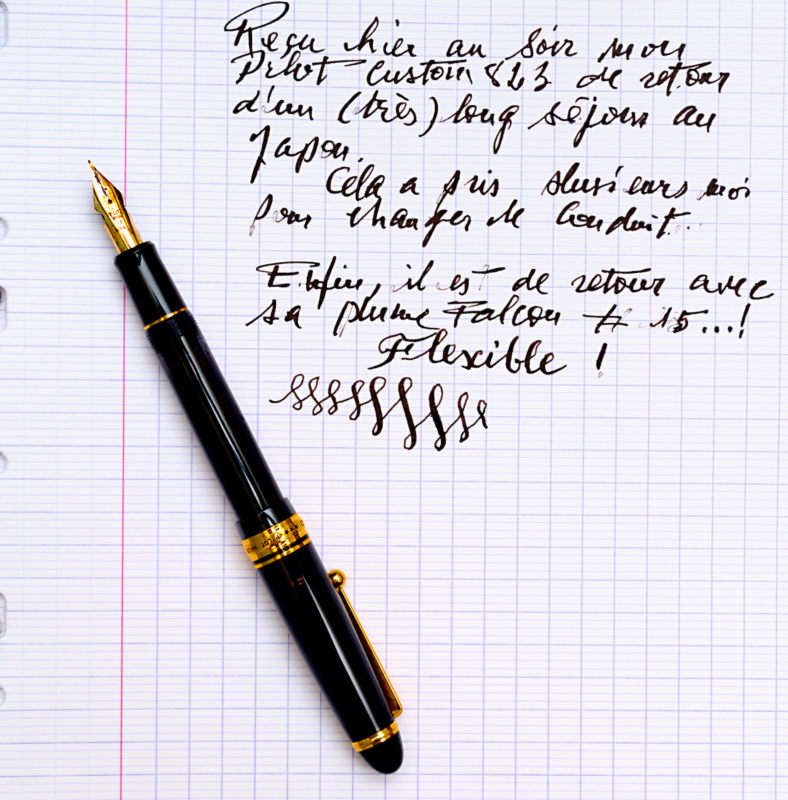 Reçu hier au soir mon
Pilot Custom 823 de retour
d'un (très) long séjour au
Japon.
Cela a pris plusieurs moi
pour changer le conduit..
Enfin, il est de retour avec
sa plume Falcon # 15...!
Flexible !